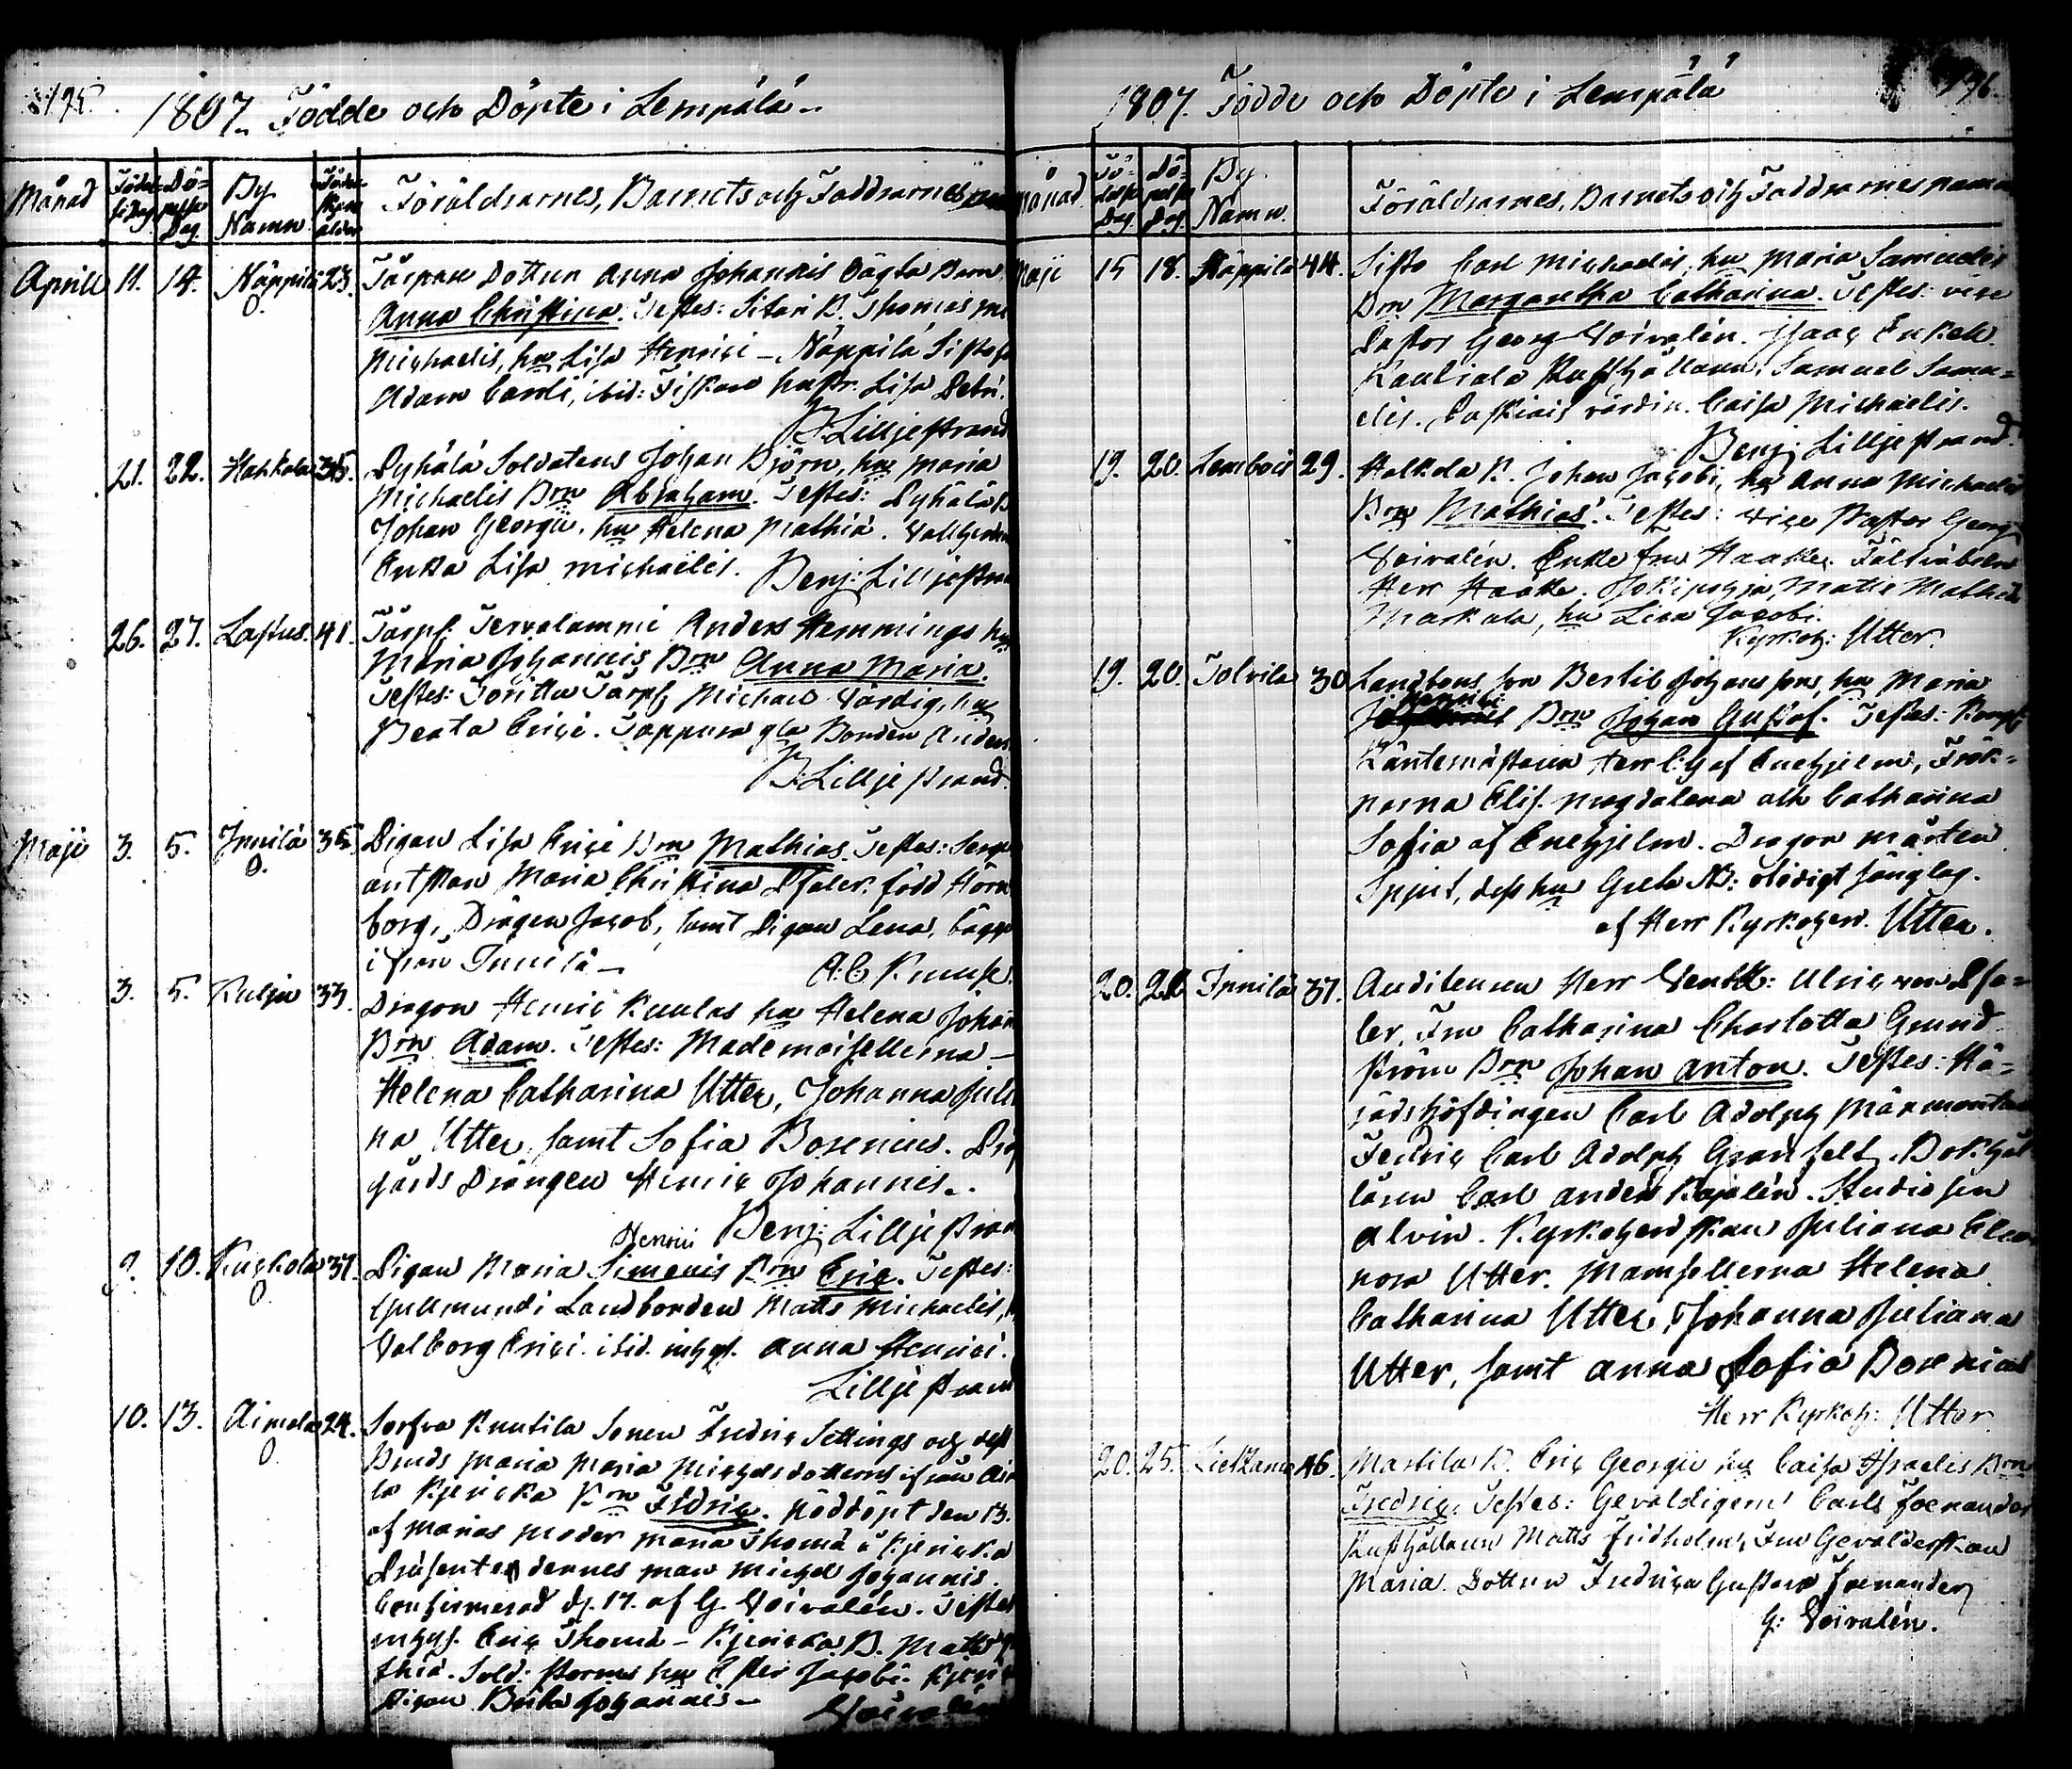 195.
1807. Födde och Döpte i Lempälä
Månad
Födel-
se Dag
Dö-
pelse
Dag.
By
Namn
Föräldrarnes, Barnets och Faddrarnes
Aprill 11. 14. Näppilä 23. Torpare Dottren Anna Johannis Oägta Barn
Anna Christina. Testes: Sitari B. Thomas
Michaelis, hu Lisa Henrici – Näppilä Sisto
Adam Caroli, ibid: Fiskars hustr. Lisa Petri.
B. Lilljestrand
21. 22. Hahkala 35. Pyhälä Soldatens Johan Björn, hu Maria
Michaelis Brn Abraham. Testes: Pyhälä B
Johan Georgii. hu Helena Mathiä.
Enka Lisa Michaelis. Benj: Lilljestran
26. 27. Lastus. 41. Torp: Tervalammi Anders Hemmings hu
Maria Johannis Brn Anna Maria.
Testes: Torp: Michael Värdig, hu
Beata Erici. Toppura gla Bonden Anders
B. Lilljestrand.
Maji 3. 5. Innilä 35. Pigan Lisa Erici Brn Mathias. Testes: Serge
antskan Maria Christina Psaler. född Hörn
borg, Drängen Jacob, samt Pigan Lena, bägge
ifrån Innilä – A: C Knuse.
3. 5. Kulju 33. Dragon Henric Kuulas hu Helena Johan
Brn Adam. Testes: Mademoisellerna –
Helena Catharina Utter, Johanna Juli
na Utter, samt Sofia Bosenius. Präs
gårds Drängen Henric Johannis.
Benj: Lilljestran
9. 10. Kuckola 37. Pigan Maria Simonis Henrici Brn Eric. Testes:
Gullmundi Landbonden Matts Michaelis,
Valborg Erici. ibid. inhys. Anna Henrici.
Lilljestran
10. 13. Aimola 24. Sorfva Knutila Sonen Fredric Settings och dess
Bruds Maria Maria Michelsdotterns ifrån Aim
la Kjericka Brn Fredric. Nöddöpt den 13.
af Marias Moder Maria Thomä i Kjericka
Präsenter dennes man Michel Johannis.
Confirmerad d. 17. af G. Voivalén. Testes
inhys. Eric Thomä – Kjericka B. Matts
thiä. Sold: Storms hu Ester Jacobi. Kjeric
Pigan Brita Johannis – Voivalén
196.
1807. Födde och Döpte i Lempälä
Månad
Fö-
delse
Dag.
Dö-
pelse
Dag.
By
Namn.
Föräldrarnes, Barnets och Faddrarnes namn
Maji 15 18. Näppilä 44. Sisto Carl Michaelis, hu Maria Samuelis
Brn Margaretha Catharina. Testes: vice
Pastor Georg Voivalén. Isaac Enkell.
Kauliala Rusthållaren, Samuel Samu=
elis. värdin. Caisa Michaelis.
Benj: Lilljestrand.
19. 20. Lembois 29. Halkola B. Johan Jacobi, hu Anna Michaelis
Brn Mathias. Testes: Vice Pastor Georg
Voivalén. Enke fru Haake. Fältväbeln
Herr Haake. Matts
Markula, hu Lisa Jacobi.
Kyrkoh: Utter.
19. 20. Tolvila 30 Landbons son Bertil Johansson, hu Maria
Henrici Brn Johan Gustaf. Testes:
Räntemästaren Herr C. G. af Enehjelm, Frök=
narna Elis. Magdalena och Catharina
Sofia af Enehjelm. Dragon Mårten
Spjut, dess hu Greta NB: olidigt sånglag.
af Herr Kyrkoherd. Utter.
20. 22 Innilä 37. Auditeuren Herr Ulric von Psa=
ler, Fru Catharina Charlotta Grund
ström Brn Johan Anton. Testes: Hä=
radshöfdingen Carl Adolph
Fredric Carl Adolph Granfelt. Bokhål
laren Carl Anders Studiosen
Alvin. Kyrkoherdskan Juliana Eleo
nora Utter. Mamsellerna Helena
Catharina Utter, Johanna Juliana
Utter, samt Anna Sofia Bosenius
Herr Kyrkoh: Utter
20. 25. 46. Martila B. Eric Georgii hu Caisa Israelis Brn
Fredric. Testes: Gevaldigern Carl Foenander
Rusthållaren Matts Fridholm, Fru Gevalderskan
Maria. Dottren Fredrica Gustava Foenander
G: Voivalén.